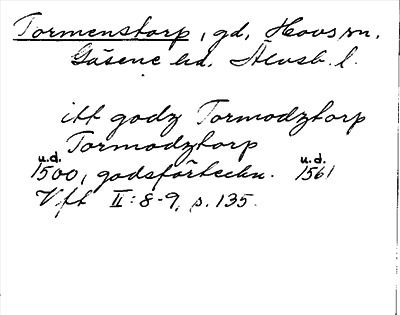 Tormenstorp, gd, Hovs sn,
Gäsene hd, Älvsb. l.
itt godz Tormodztorp
Tormodztorp
u.d. u.d.
1500, godsförteckn. 1561
Vft II:8-9, s. 135.